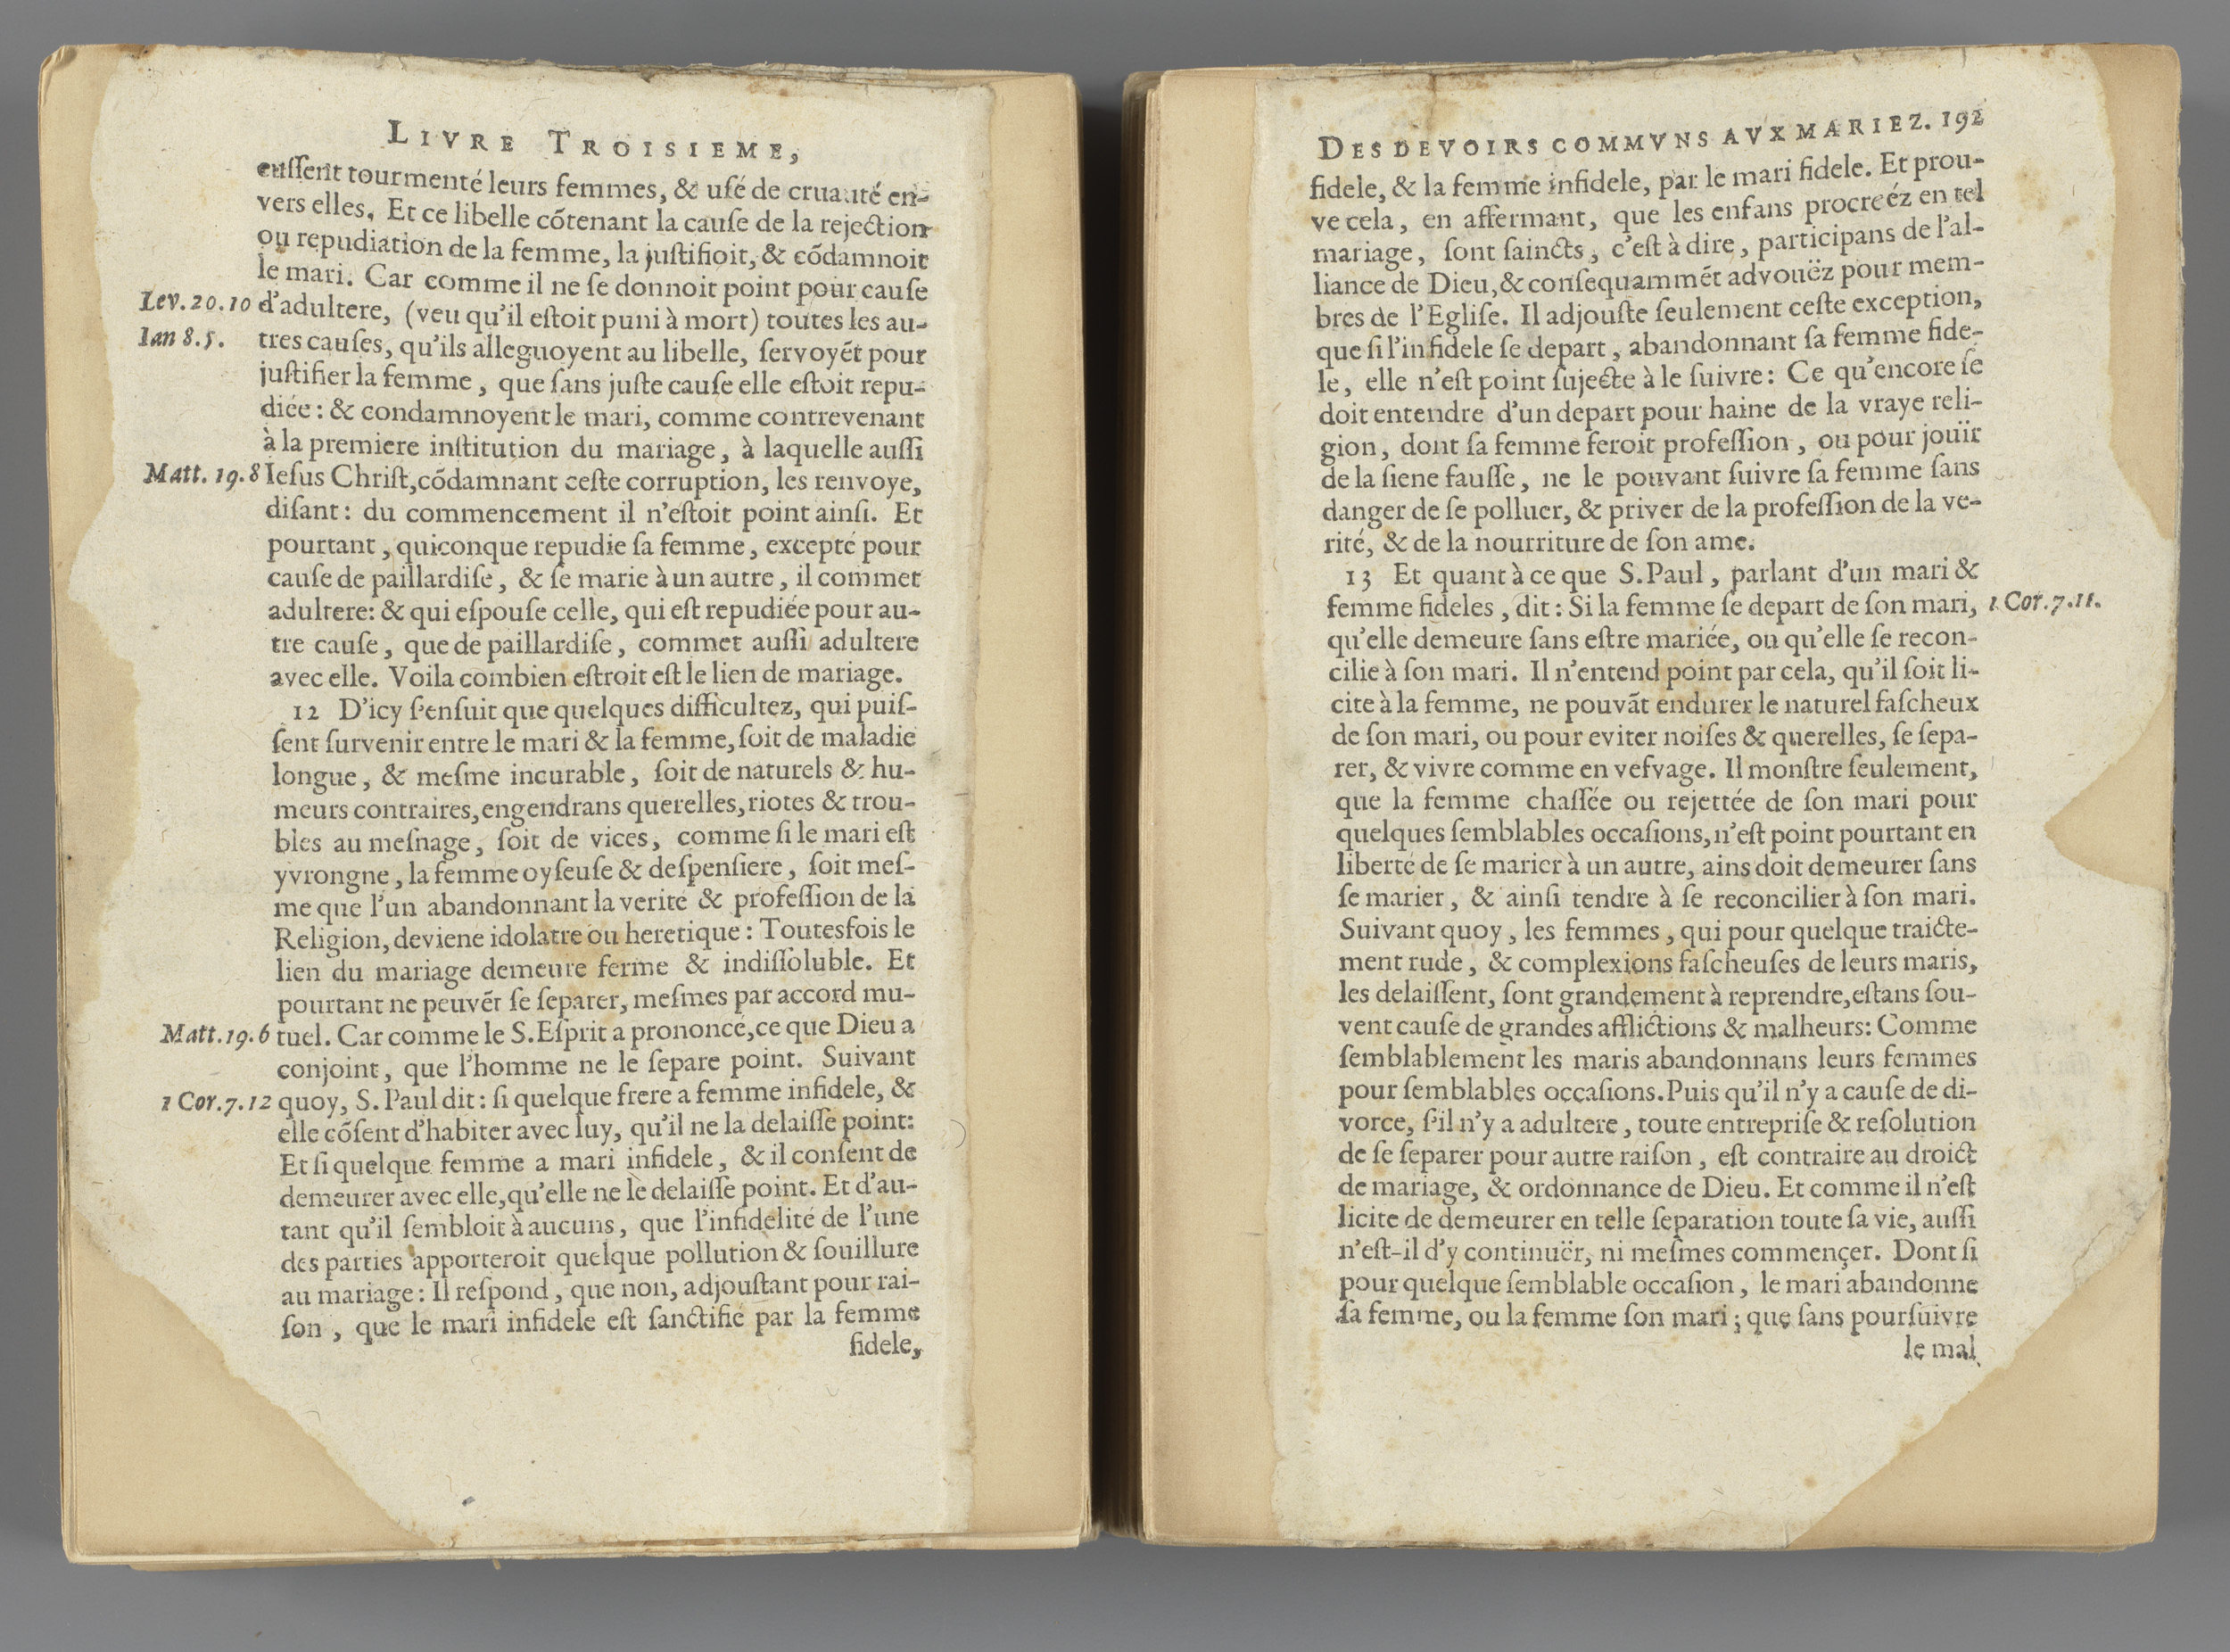 LIVRE TROISIEME,
eussent tourmenté leurs femmes, & usé de cruauté en-
vers elles. Et ce libelle cõtenant la cause de la rejection
ou repudiation de la femme, la justifioit, & cõdamnoit
le mari. Car comme il ne se donnoit point pour cause
Lev. 20. 10 d'adultere, (veu qu'il estoit puni à mort) toutes les au-
Ian 8. 5. tres causes, qu'ils alleguoyent au libelle, servoyẽt pour
justifier la femme, que sans juste cause elle estoit repu-
diée: & condamnoyent le mari, comme contrevenant
à la premiere institution du mariage, à laquelle aussi
Matt. 19. 8 Iesus Christ, cõdamnant ceste corruption, les renvoye,
disant: du commencement il n'estoit point ainsi. Et
pourtant, quiconque repudie sa femme, excepté pour
cause de paillardise, & se marie à un autre, il commet
adultere: & qui espouse celle, qui est repudiée pour au-
tre cause, que de paillardise, commet aussi adultere
avec elle. Voila combien estroit est le lien de mariage.
12 D'icy s'ensuit que quelques difficultez, qui puis-
sent survenir entre le mari & la femme, soit de maladie
longue, & mesme incurable, soit de naturels & hu-
meurs contraires, engendrans querelles, riotes & trou-
bles au mesnage, soit de vices, comme si le mari est
yvrongne, la femme oyseuse & despensiere, soit mes-
me que l'un abandonnant la verité & profession de la
Religion, deviene idolatre ou heretique: Toutesfois le
lien du mariage demeure ferme & indissoluble. Et
pourtant ne peuvẽt se separer, mesmes par accord mu-
Matt. 19. 6 tuel. Car comme le S. Esprit a prononcé, ce que Dieu a
conjoint, que l'homme ne le separe point. Suivant
1 Cor. 7. 12 quoy, S. Paul dit: si quelque frere a femme infidele, &
elle cõsent d'habiter avec luy, qu'il ne la delaisse point:
Et si quelque femme a mari infidele, & il consent de
demeurer avec elle, qu'elle ne le delaisse point. Et d'au-
tant qu'il sembloit à aucuns, que l'infidelité de l'une
des parties apporteroit quelque pollution & souillure
au mariage: Il respond, que non, adjoustant pour rai-
son, que le mari infidele est sanctifié par la femme
fidele,
DES DEVOIRS COMMVNS AVX MARIEZ. 192
fidele, & la femme infidele, par le mari fidele. Et prou-
ve cela, en affermant, que les enfans procreéz en tel
mariage, sont saincts, c'est à dire, participans de l'al-
liance de Dieu, & consequammẽt advouëz pour mem-
bres de l'Eglise. Il adjouste seulement ceste exception,
que si l'infidele se depart, abandonnant sa femme fide-
le, elle n'est point sujecte à le suivre: Ce qu'encore se
doit entendre d'un depart pour haine de la vraye reli-
gion, dont sa femme feroit profession, ou pour jouïr
de la siene fausse, ne le pouvant suivre sa femme sans
danger de se polluer, & priver de la profession de la ve-
rité, & de la nourriture de son ame.
13 Et quant à ce que S. Paul, parlant d'un mari &
femme fideles, dit: Si la femme se depart de son mari, 1 Cor. 7. 11.
qu'elle demeure sans estre mariée, ou qu'elle se recon-
cilie à son mari. Il n'entend point par cela, qu'il soit li-
cite à la femme, ne pouvãt endurer le naturel fascheux
de son mari, ou pour eviter noises & querelles, se sepa-
rer, & vivre comme en vefvage. Il monstre seulement,
que la femme chassée ou rejettée de son mari pour
quelques semblables occasions, n'est point pourtant en
liberté de se marier à un autre, ains doit demeurer sans
se marier, & ainsi tendre à se reconcilier à son mari.
Suivant quoy, les femmes, qui pour quelque traicte-
ment rude, & complexions fascheuses de leurs maris,
les delaissent, sont grandement à reprendre, estans sou-
vent cause de grandes afflictions & malheurs: Comme
semblablement les maris abandonnans leurs femmes
pour semblables occasions. Puis qu'il n'y a cause de di-
vorce, s'il n'y a adultere, toute entreprise & resolution
de se separer pour autre raison, est contraire au droict
de mariage, & ordonnance de Dieu. Et comme il n'est
licite de demeurer en telle separation toute sa vie, aussi
n'est-il d'y continuër, ni mesmes commençer. Dont si
pour quelque semblable occasion, le mari abandonne
sa femme, ou la femme son mari; que sans poursuivre
le mal